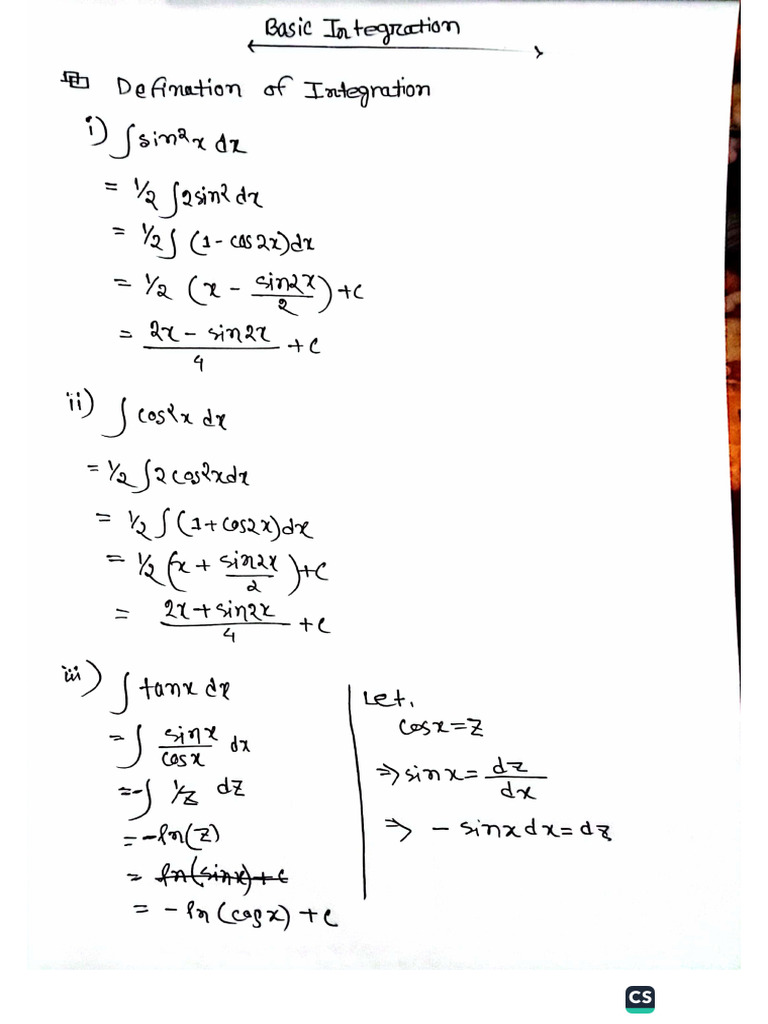 Basic Integration
Defination of Integration
i) ∫sin²x dx
= 1/2 ∫2sin² dx
= 1/2 ∫ (1 - cos2x)dx
= 1/2 (x - sin2x/2) + c
= (2x - sin2x)/4 + c
ii) ∫ cos²x dx
= 1/2 ∫2cos²xdx
= 1/2 ∫(1 + cos2x)dx
= 1/2 (x + sin2x/2) + c
= (2x + sin2x)/4 + c
iii) ∫ tanx dx
= ∫ sinx/cosx dx
= -∫ 1/z dz
= -ln(z)
= ln(sinx) + c
= -ln(cosx) + c
Let,
cosx = z
⇒ sinx = dz/dx
⇒ - sinxdx = dz
CS